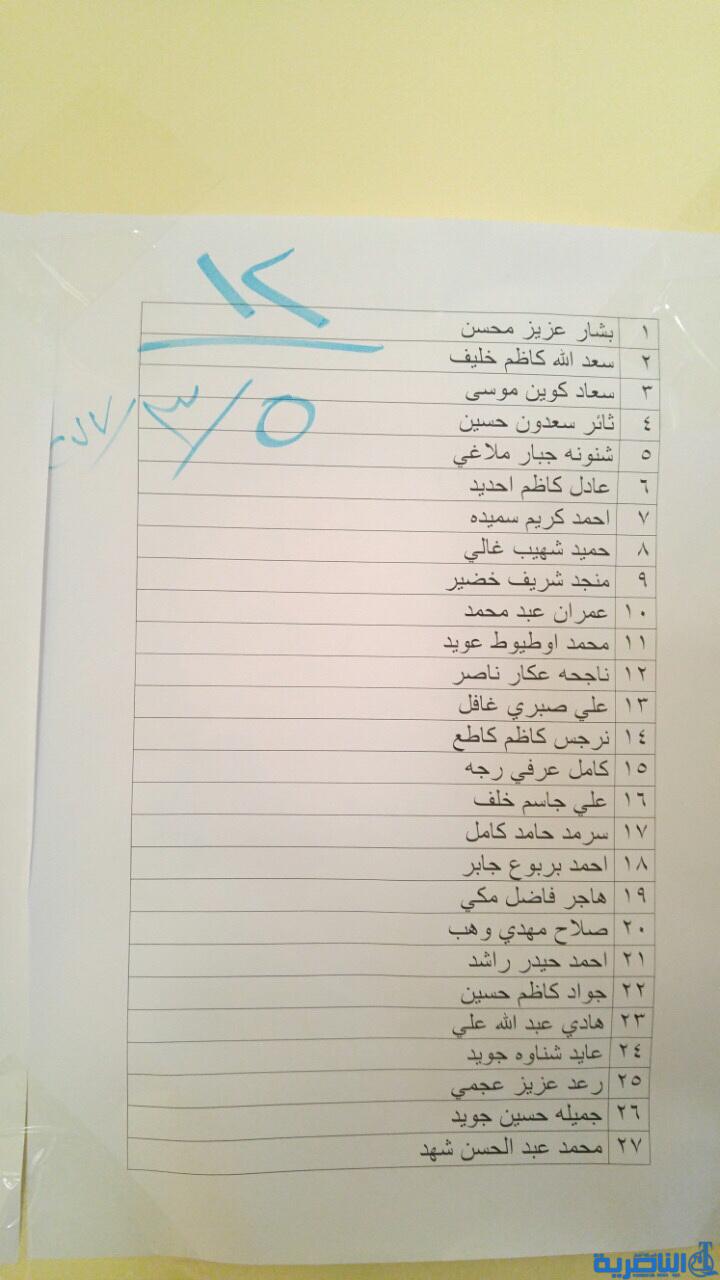 ١٢
٥/٣/٢٠١٧
١ بشار عزيز محسن
٢ سعد الله كاظم خليف
٣ سعاد كوين موسى
٤ ثائر سعدون حسين
٥ شنونه جبار ملاغي
٦ عادل كاظم احديد
٧ احمد كريم سميده
٨ حميد شهيب غالي
٩ منجد شريف خضير
١٠ عمران عبد محمد
١١ محمد اوطيوط عويد
١٢ ناجحه عكار ناصر
١٣ علي صبري غافل
١٤ نرجس كاظم كاطع
١٥ كامل عرفي رجه
١٦ علي جاسم خلف
١٧ سرمد حامد كامل
١٨ احمد بربوع جابر
١٩ هاجر فاضل مكي
٢٠ صلاح مهدي وهب
٢١ احمد حيدر راشد
٢٢ جواد كاظم حسين
٢٣ هادي عبد الله علي
٢٤ عايد شناوه جويد
٢٥ رعد عزيز عجمي
٢٦ جميله حسين جويد
٢٧ محمد عبد الحسن شهد
الناصرية